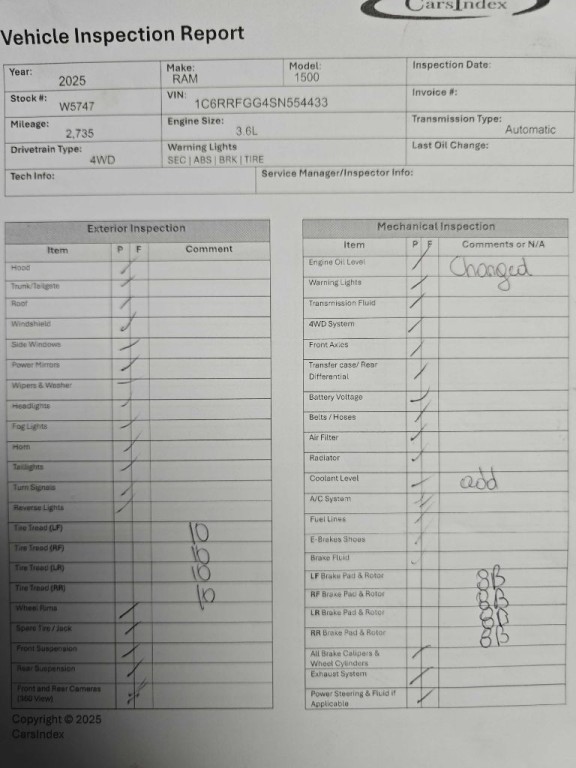 CarsIndex
Vehicle Inspection Report
Year: 2025 Make: RAM Model: 1500 Inspection Date:
Stock #: W5747 VIN: 1C6RRFGG4SN554433 Invoice #:
Mileage: 2,735 Engine Size: 3.6L Transmission Type: Automatic
Drivetrain Type: 4WD Warning Lights SEC | ABS | BRK | TIRE Last Oil Change:
Tech Info: Service Manager/Inspector Info:
Exterior Inspection
Item P F Comment
Hood
Trunk/Tailgate
Roof
Windshield
Side Windows
Power Mirrors
Wipers & Washer
Headlights
Fog Lights
Horn
Taillights
Turn Signals
Reverse Lights
Tire Tread (LF) 10
Tire Tread (RF) 10
Tire Tread (LR) 10
Tire Tread (RR) 10
Wheel Rims
Spare Tire / Jack
Front Suspension
Rear Suspension
Front and Rear Cameras
(360 View)
Copyright © 2025
CarsIndex
Mechanical Inspection
Item P F Comments or N/A
Engine Oil Level Changed
Warning Lights
Transmission Fluid
4WD System
Front Axles
Transfer case/ Rear
Differential
Battery Voltage
Belts / Hoses
Air Filter
Radiator
Coolant Level add
A/C System
Fuel Lines
E-Brakes Shoes
Brake Fluid
LF Brake Pad & Rotor 8B
RF Brake Pad & Rotor 8B
LR Brake Pad & Rotor 8B
RR Brake Pad & Rotor 8B
All Brake Calipers &
Wheel Cylinders
Exhaust System
Power Steering & Fluid if
Applicable